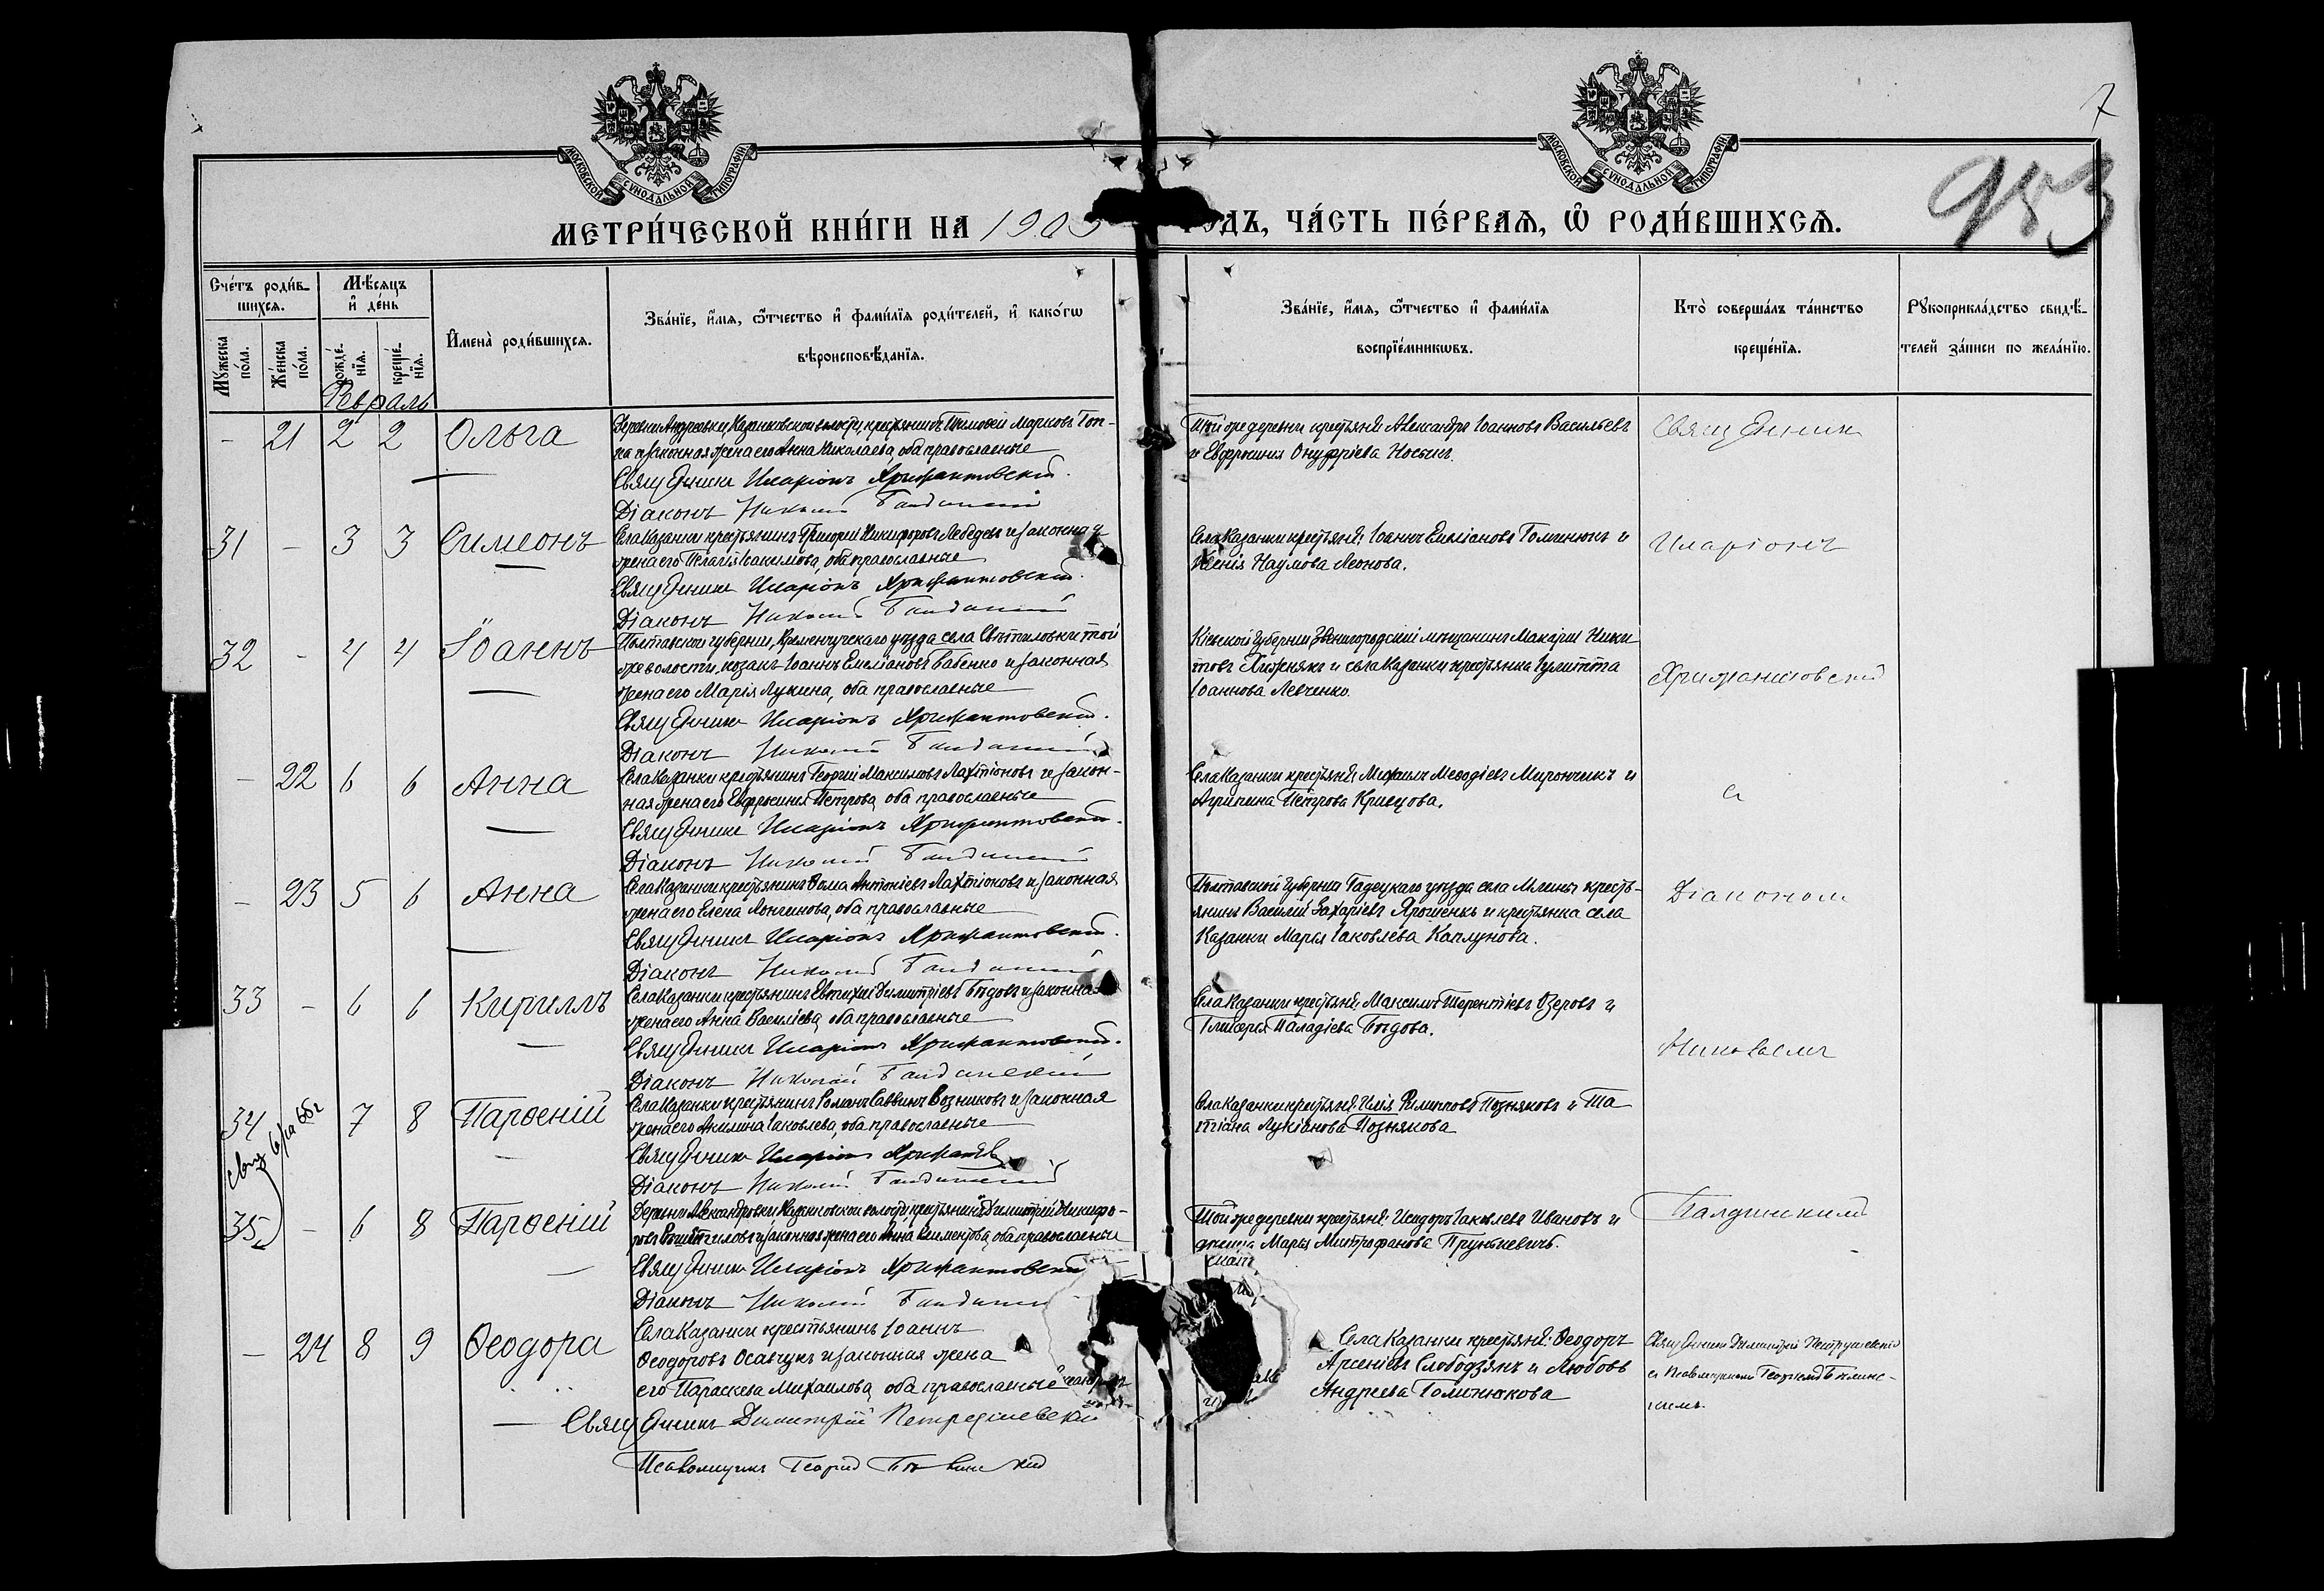 МОСКОВСКОЙ СѴНОДАЛЬНОЙ ТИПОГРАФІИ
МОСКОВСКОЙ СѴНОДАЛЬНОЙ ТИПОГРАФІИ
7
953
МЕТРИ́ЧЕСКОЙ КНИ́ГИ НА 1905 ГОДЪ, ЧА́СТЬ ПЕ́РВАѦ, Ѡ҆ РОДИ́ВШИХСѦ.
Сче́тъ роди́в-
шихсѧ.
Мѣ́сѧцъ
и҆ де́нь
И҆мена̀ роди́вшихсѧ.
Зва́нїе, и҆́мѧ, ѻ҆́тчество и҆ фами́лїѧ роди́телей, и҆ како́гѡ
вѣроисповѣ́данїѧ.
Зва́нїе, и҆́мѧ, ѻ҆́тчество и҆ фами́лїѧ
воспрїе́мникѡвъ.
Кто̀ соверша́лъ та́инство
креще́нїѧ.
Рꙋкоприкла́дство свидѣ́-
телей за́писи по жела́нїю.
Мꙋ́жеска
по́ла.
Же́нска
по́ла.
рожде́-
нїѧ.
креще́-
нїѧ.
Февраль
- 21 2 2 Ольга
Деревни Андреевки, Казанковской волости, крестьянинъ Тимофей Марковъ Гоп-
ка и законная жена его Анна Николаева, оба православные
Священникъ Иларіонъ Хрисантовскій.
Діаконъ Николай
Той же деревни крестьяне: Александръ Іоанновъ Васильевъ
и Евфросинія Онуфріева Носыкъ.
Священник
31 - 3 3 Симеонъ
Села Казанки крестьянинъ Григорій Никифоровъ Лебедевъ и законная
жена его Пелагія Іоакимова, оба православные
Священникъ Иларіонъ Хрисантовскій.
Діаконъ Николай
Села Казанки крестьяне: Іоаннъ Емиліановъ Голинюкъ и
Ксенія Наумова Леонова.
Иларіонъ
32 - 4 4 Іоаннъ
Полтавской губерніи, Кременчугскаго уѣзда села Свѣтиловки той
же волости, козакъ Іоаннъ Емеліановъ Бабенко и законная
жена его Марія Лукина, оба православные
Священникъ Иларіонъ Хрисантовскій.
Діаконъ Николай
Кіевской губерніи Звенигородскій мѣщанинъ Макарій Ники
товъ Хижнякъ и села Казанки крестьянка Іулитта
Іоаннова Левченко.
Хрисантовскій
- 22 6 6 Анна
Села Казанки крестьянинъ Георгій Максимовъ Лахтіоновъ и закон-
ная жена его Евфросинія Петрова, оба православные
Священникъ Иларіонъ Хрисантовскій.
Діаконъ Николай
Села Казанки крестьяне: Михаилъ Меѳодіевъ Мирончикъ и
Агрипина Петрова Кривцова.
с
- 23 5 6 Анна
Села Казанки крестьянинъ Ѳома Антоніевъ Лахтіоновъ и законная
жена его Елена Лонгинова, оба православные
Священникъ Иларіонъ Хрисантовскій.
Діаконъ Николай
Полтавской губерніи Гадецкаго уѣзда села Млины кресть-
янинъ Василій Захаріевъ Ярошенкъ и крестьянка села
Казанки Марѳа Іаковлева Каплунова.
Діаконом
33 - 6 6 Кириллъ
Села Казанки крестьянинъ Евтихій Димитріевъ Бѣдовъ и законная
жена его Анна Василіева, оба православные
Священникъ Иларіонъ Хрисантовскій.
Діаконъ Николай
Села Казанки крестьяне: Максимъ Терентіевъ Озеровъ и
Гликерія Паладіева Бѣдова.
Николаемъ
34 - 7 8 Парѳеній
Села Казанки крестьянинъ Романъ Саввинъ Возниковъ и законная
жена его Акилина Іаковлева, оба православные
Священникъ Иларіонъ
Діаконъ Николай
Села Казанки крестьяне: Илія Филипповъ Позняковъ и Та
тіана Лукіанова Познякова
35 - 6 8 Парѳеній
Деревни Александровки Казанковской волости, крестьянинъ Димитрій Никифо-
ровъ и законная жена его Анна Климентова, оба православные
Священникъ Иларіонъ Хрисантовскій
Діаконъ Николай
Той же деревни крестьяне: Исидоръ Іаковлевъ Ивановъ и
Марѳа Митрофанова
- 24 8 9 Ѳеодора
Села Казанки крестьянинъ Іоаннъ
Ѳеодоровъ Осавчукъ и законная жена
его Параскева Михаилова, оба православные
Священникъ Димитрій Петрушевскій
Псаломщикъ Георгій
Села Казанки крестьяне: Ѳеодоръ
Арсеніевъ Слободзянъ и Любовь
Андреева Голинюкова
Священникъ Димитрій Петрушевскій
съ Псаломщикомъ Георгіемъ